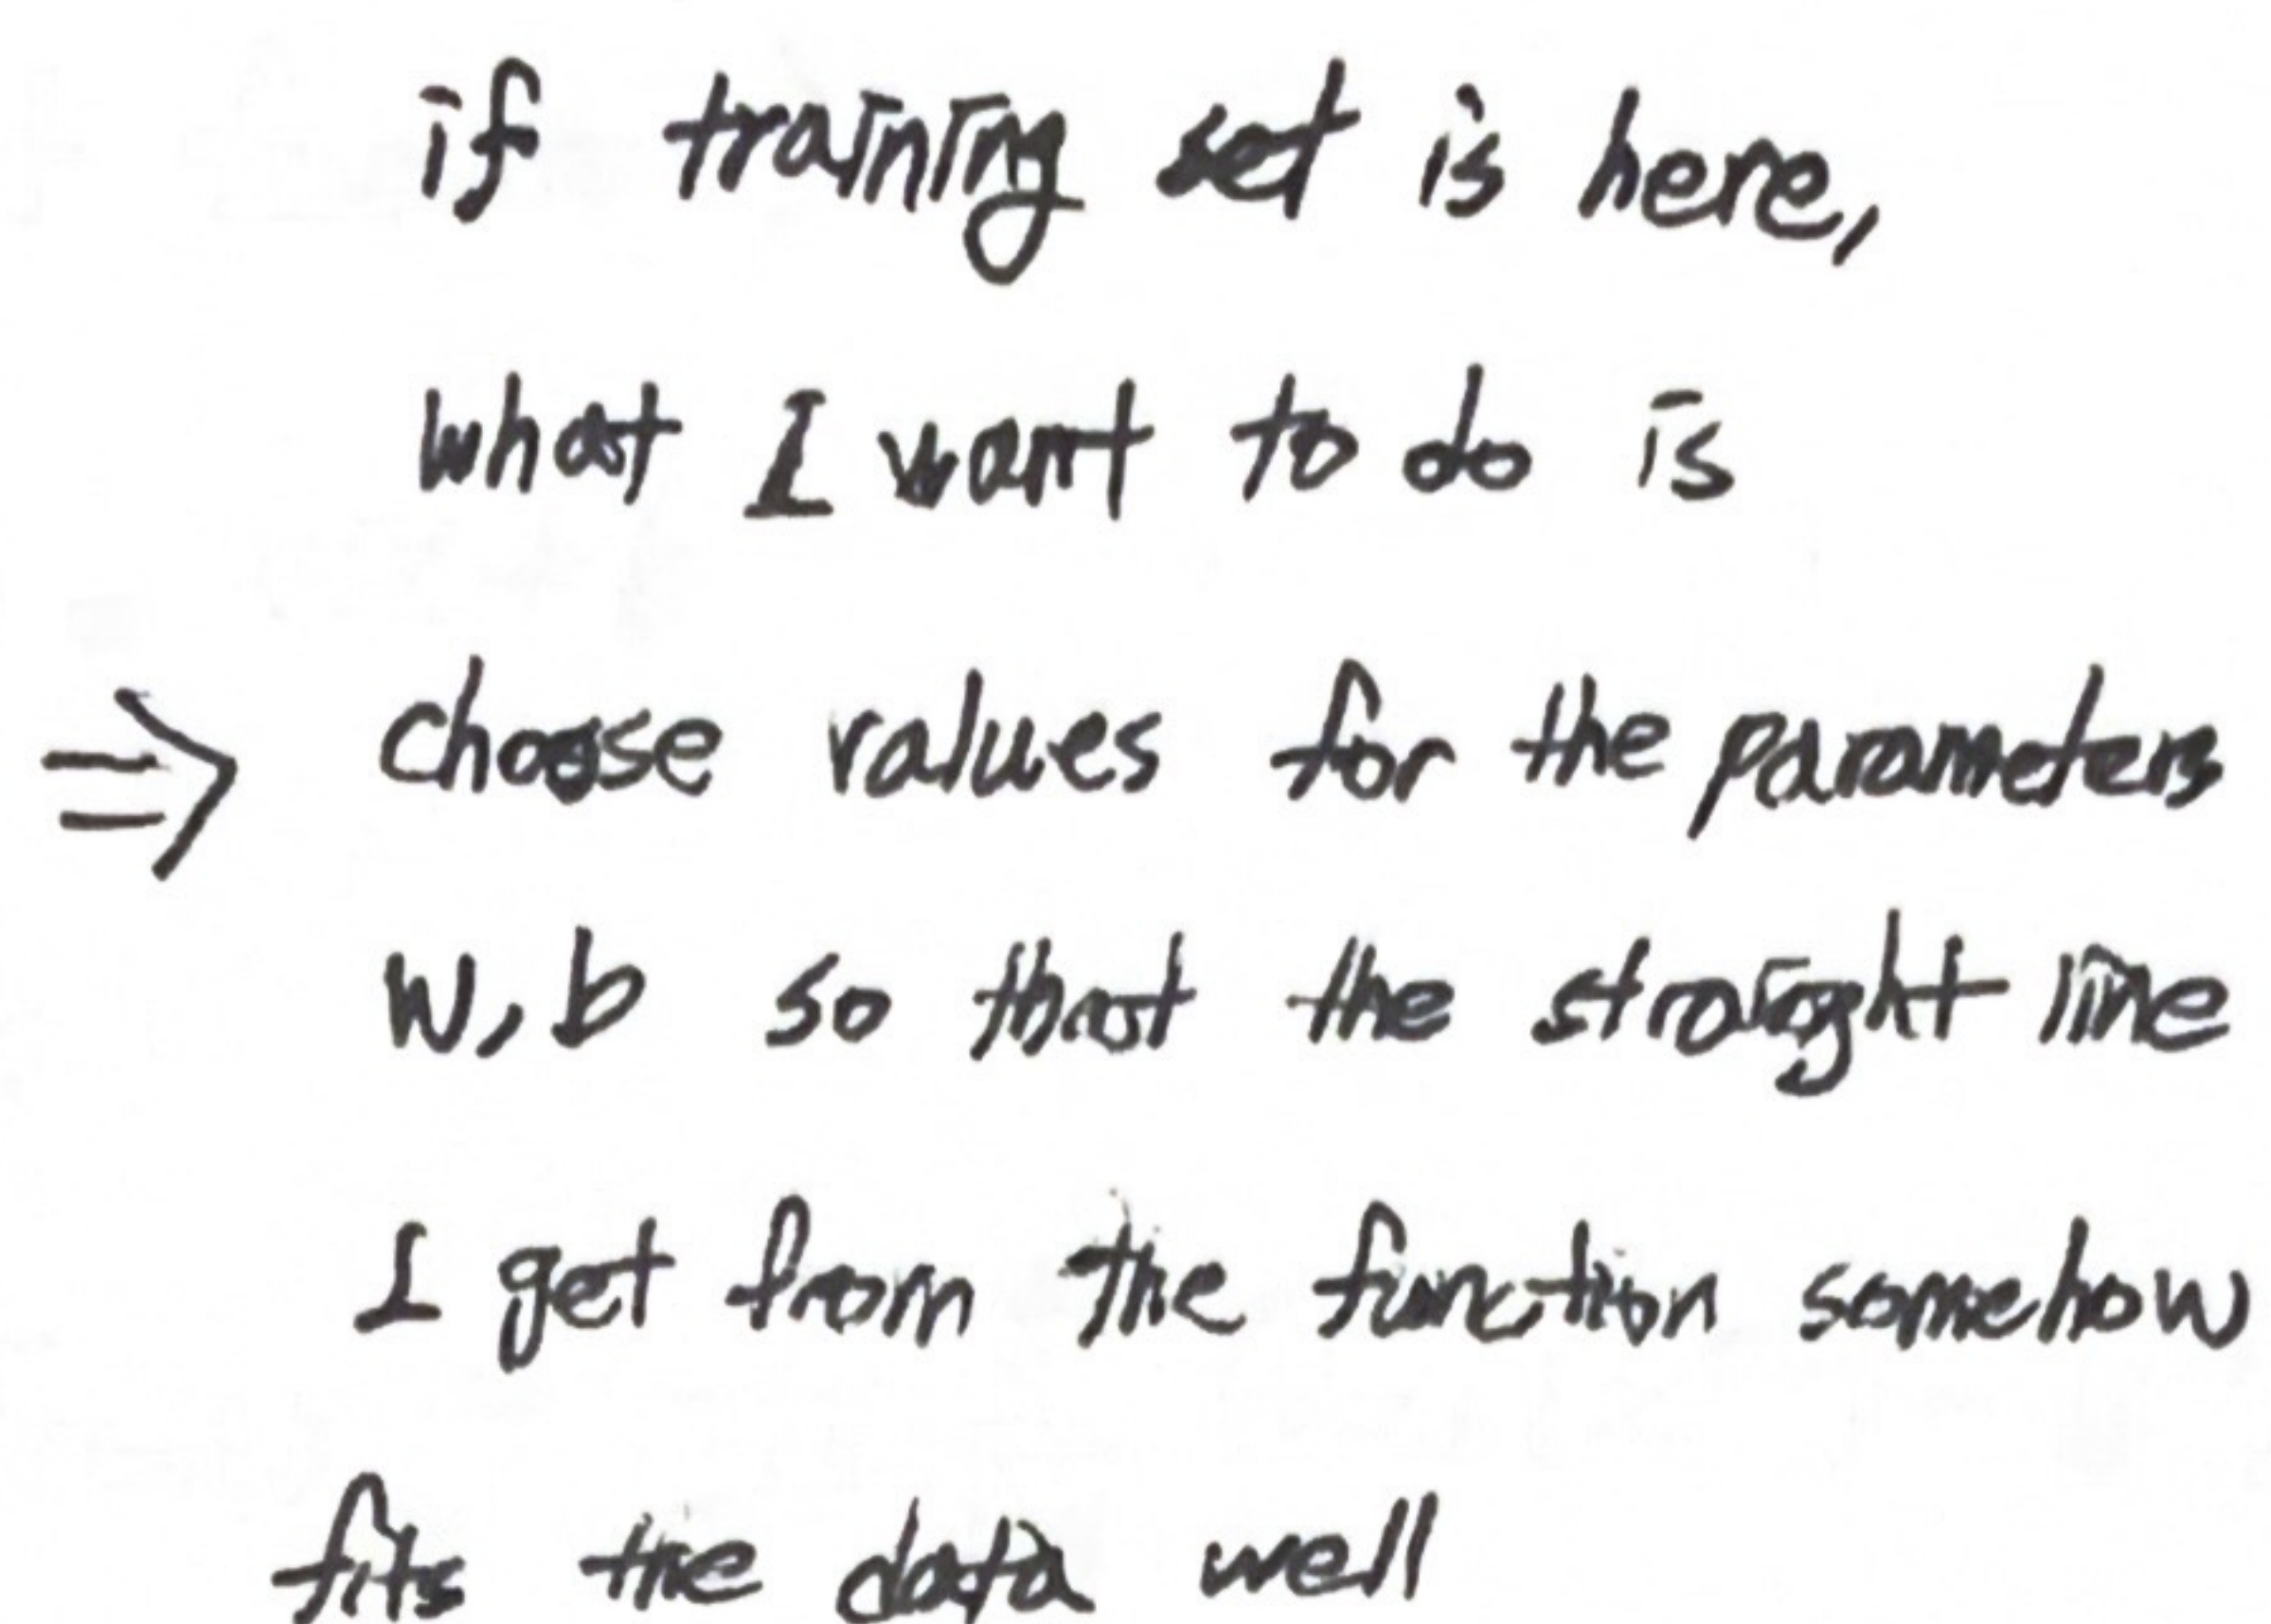 if training set is here,
what I want to do is
⇒ choose values for the parameters
w, b so that the straight line
I get from the function somehow
fits the data well